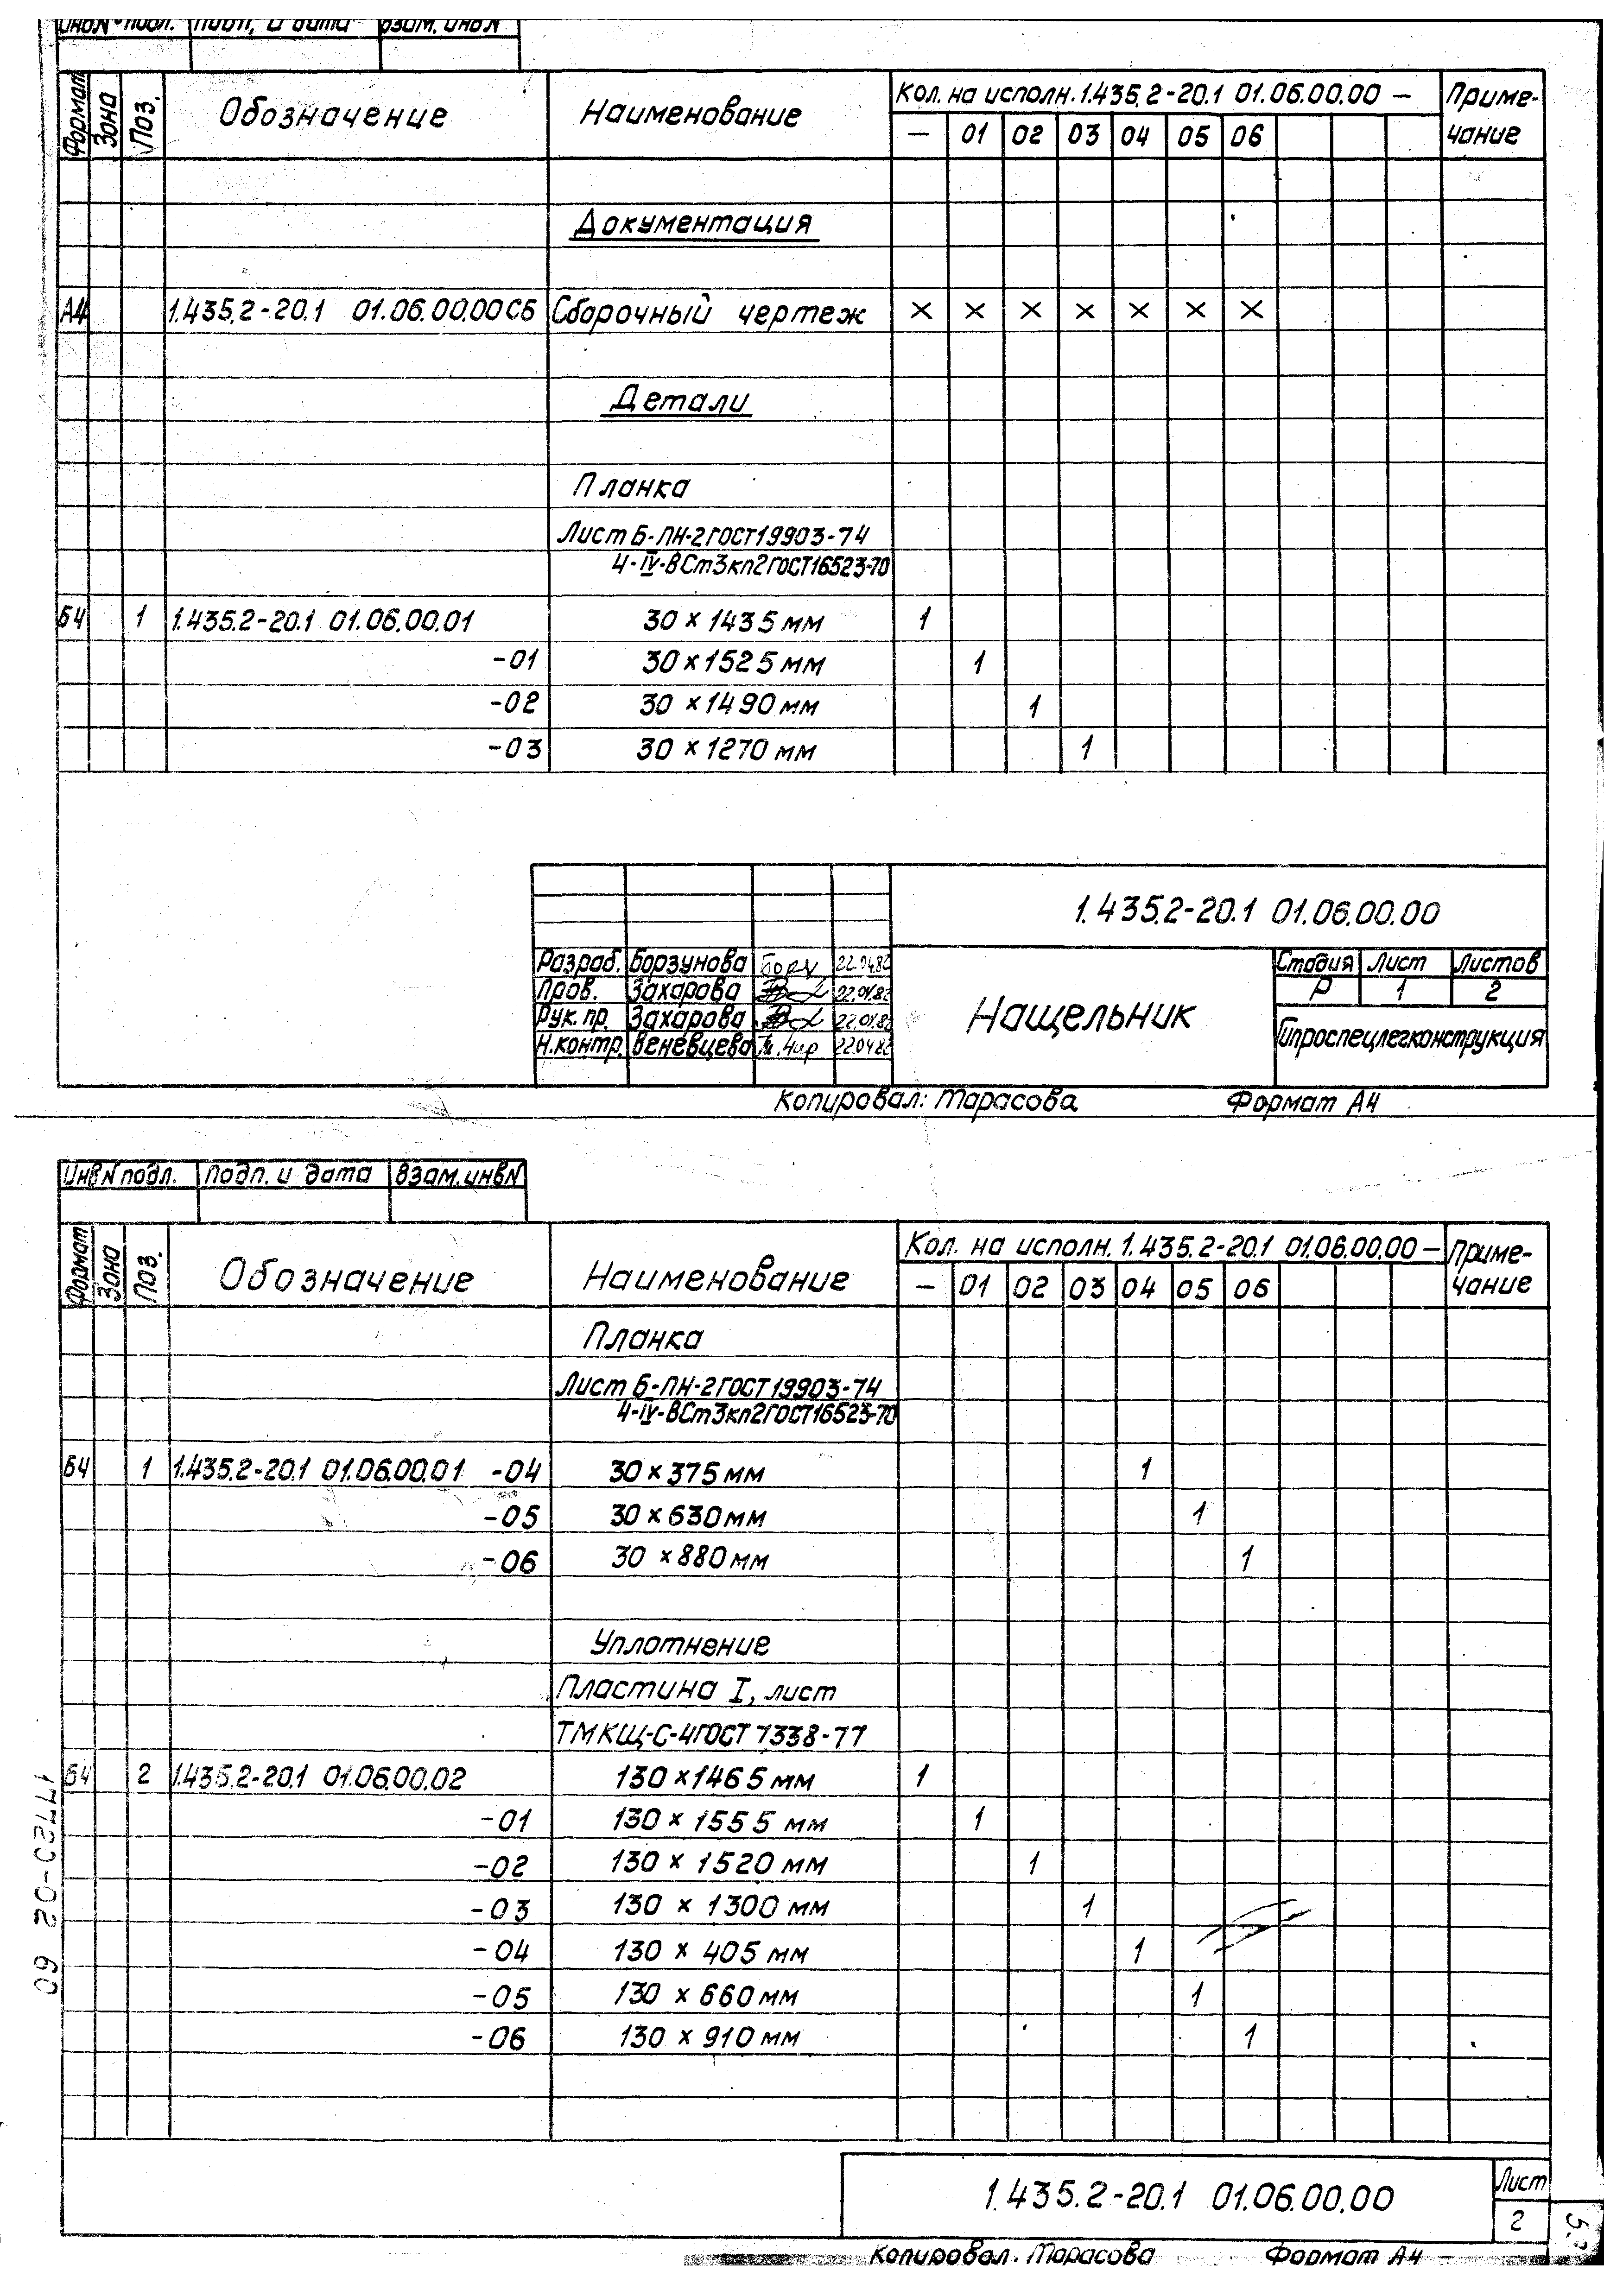 Инв.N подл. Подп. и дата Взам. инв.N
Формат Зона Поз. Обозначение Наименование Кол. на исполн. 1.435.2-20.1 01.06.00.00 — Приме-
— 01 02 03 04 05 06 чание
Документация
А4 1.435.2-20.1 01.06.00.00СБ Сборочный чертеж × × × × × × ×
Детали
Планка
Лист Б-ПН-2ГОСТ19903-74
4-IV-ВСт3кп2ГОСТ16523-70
Б4 1 1.435.2-20.1 01.06.00.01 30×1435 мм 1
-01 30×1525 мм 1
-02 30×1490 мм 1
-03 30×1270 мм 1
1.435.2-20.1 01.06.00.00
Разраб. Борзунова 22.04.82 Нащельник Стадия Лист Листов
Пров. Захарова 22.04.82 Р 1 2
Рук. пр. Захарова 22.04.82 Гипроспецлегконструкция
Н.контр. Веневцева 22.04.82
Копировал: Тарасова Формат А4
Инв.N подл. Подп. и дата Взам. инв.N
Формат Зона Поз. Обозначение Наименование Кол. на исполн. 1.435.2-20.1 01.06.00.00 — Приме-
— 01 02 03 04 05 06 чание
Планка
Лист Б-ПН-2ГОСТ19903-74
4-IV-ВСт3кп2ГОСТ16523-70
Б4 1 1.435.2-20.1 01.06.00.01 -04 30×375 мм 1
-05 30×630 мм 1
-06 30×880 мм 1
Уплотнение
Пластина I, лист
ТМКЩ-С-4ГОСТ 7338-77
Б4 2 1.435.2-20.1 01.06.00.02 130×1465 мм 1
-01 130×1555 мм 1
-02 130×1520 мм 1
-03 130×1300 мм 1
-04 130×405 мм 1
-05 130×660 мм 1
-06 130×910 мм 1
17720-02 60
1.435.2-20.1 01.06.00.00 Лист
2
Копировал. Тарасова Формат А4